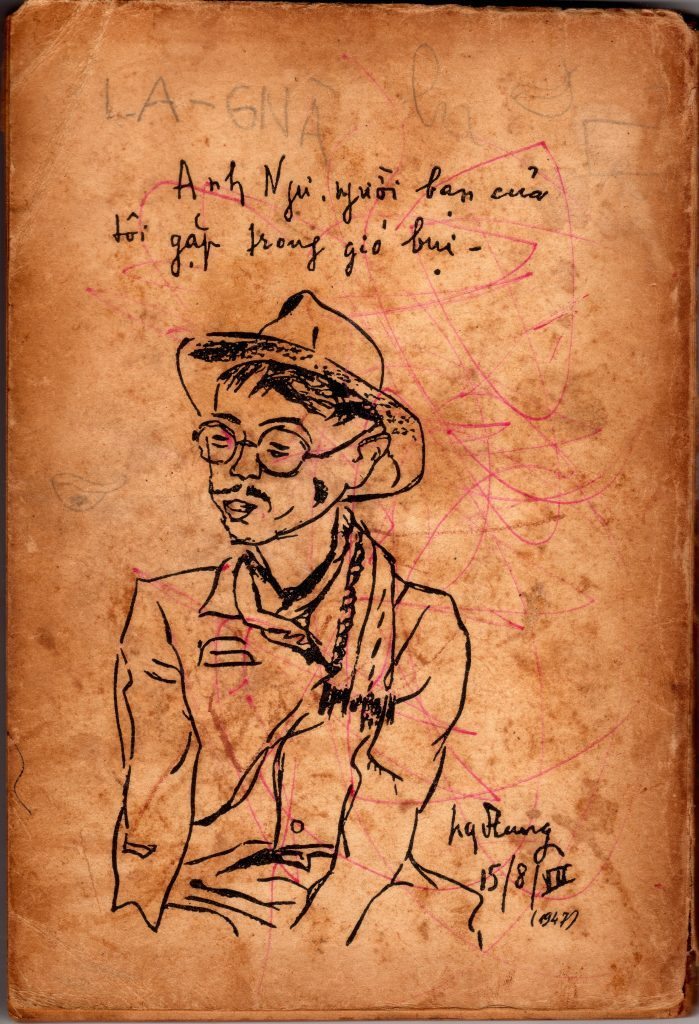 LA-GNÂ
Anh Ngư, người bạn của
tôi gặp trong gió bụi -
15/8/III
(1947)